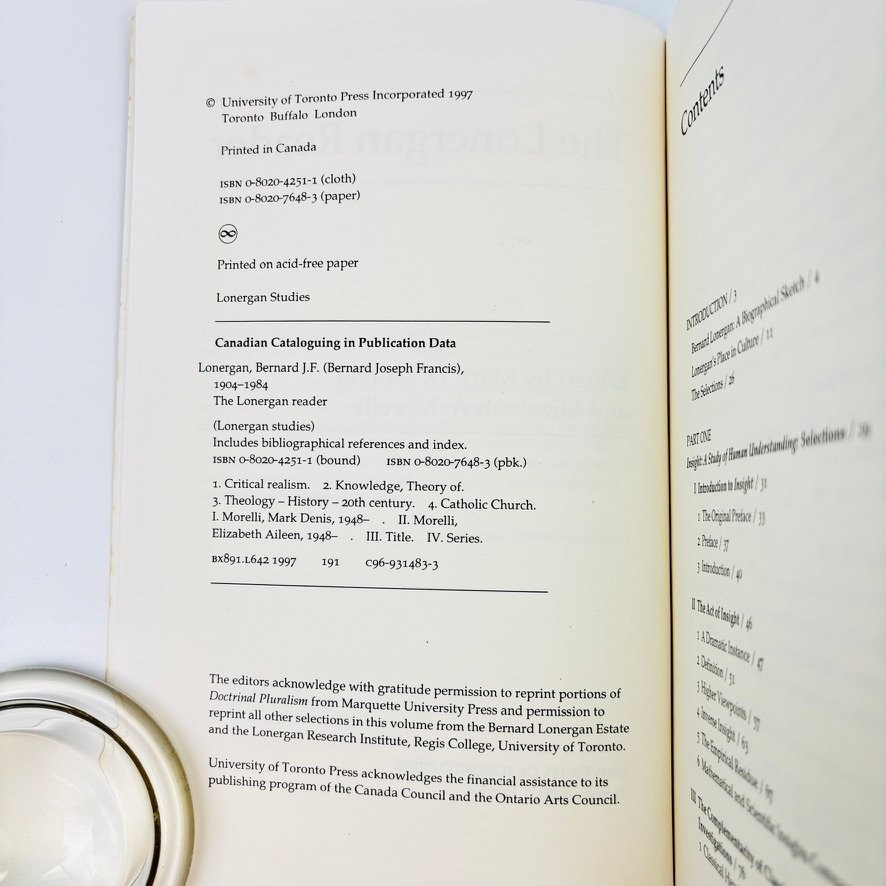 © University of Toronto Press Incorporated 1997
Toronto Buffalo London
Printed in Canada
ISBN 0-8020-4251-1 (cloth)
ISBN 0-8020-7648-3 (paper)
Printed on acid-free paper
Lonergan Studies
Canadian Cataloguing in Publication Data
Lonergan, Bernard J.F. (Bernard Joseph Francis),
1904–1984
The Lonergan reader
(Lonergan studies)
Includes bibliographical references and index.
ISBN 0-8020-4251-1 (bound) ISBN 0-8020-7648-3 (pbk.)
1. Critical realism. 2. Knowledge, Theory of.
3. Theology – History – 20th century. 4. Catholic Church.
I. Morelli, Mark Denis, 1948– . II. Morelli,
Elizabeth Aileen, 1948– . III. Title. IV. Series.
BX891.L642 1997 191 C96-931483-3
The editors acknowledge with gratitude permission to reprint portions of
Doctrinal Pluralism from Marquette University Press and permission to
reprint all other selections in this volume from the Bernard Lonergan Estate
and the Lonergan Research Institute, Regis College, University of Toronto.
University of Toronto Press acknowledges the financial assistance to its
publishing program of the Canada Council and the Ontario Arts Council.
Contents
INTRODUCTION / 3
Bernard Lonergan: A Biographical Sketch / 4
Lonergan's Place in Culture / 11
The Selections / 26
PART ONE
Insight: A Study of Human Understanding: Selections /
I Introduction to Insight / 31
1 The Original Preface / 33
2 Preface / 37
3 Introduction / 40
II The Act of Insight / 46
1 A Dramatic Instance / 47
2 Definition / 51
3 Higher Viewpoints / 57
4 Inverse Insight / 63
5 The Empirical Residue / 67
6 Mathematical and Scientific Insights
III The Complementarity of
Investigations / 76
1 Classical